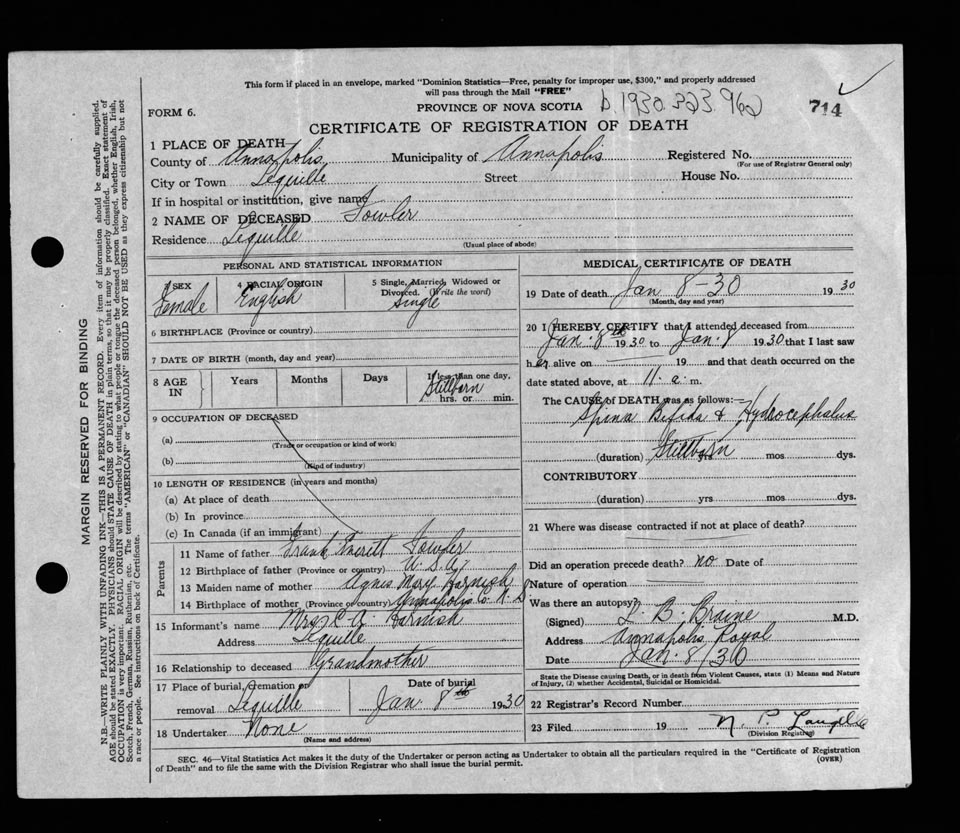 This form if placed in an envelope, marked "Dominion Statistics—Free, penalty for improper use, $300," and properly addressed
will pass through the Mail "FREE"
FORM 6.
PROVINCE OF NOVA SCOTIA
b 1930 323 962
714
CERTIFICATE OF REGISTRATION OF DEATH
1 PLACE OF DEATH
County of Annapolis Municipality of Annapolis Registered No.
(For use of Registrar General only)
City or Town Lequille Street House No.
If in hospital or institution, give name
2 NAME OF DECEASED Fowler
Residence Lequille
(Usual place of abode)
PERSONAL AND STATISTICAL INFORMATION
3 SEX Female
4 RACIAL ORIGIN English
5 Single, Married, Widowed or
Divorced. (Write the word)
Single
6 BIRTHPLACE (Province or country)
7 DATE OF BIRTH (month, day and year)
8 AGE IN Years Months Days If less than one day,
Stillborn
hrs. or min.
9 OCCUPATION OF DECEASED
(a)
(Trade or occupation or kind of work)
(b)
(Kind of industry)
10 LENGTH OF RESIDENCE (in years and months)
(a) At place of death
(b) In province
(c) In Canada (if an immigrant)
Parents
11 Name of father Frank Everitt Fowler
12 Birthplace of father (Province or country) U.S.A.
13 Maiden name of mother Agnes Mary Harnish
14 Birthplace of mother (Province or country) Annapolis Co. N.S
15 Informant's name Mrs C A. Harnish
Address Lequille
16 Relationship to deceased Grandmother
17 Place of burial, cremation or
removal Lequille
Date of burial
Jan. 8th 1930
18 Undertaker None
(Name and address)
MEDICAL CERTIFICATE OF DEATH
19 Date of death Jan 8-30 1930
(Month, day and year)
20 I HEREBY CERTIFY that I attended deceased from
Jan. 8th 1930 to Jan. 8 1930 that I last saw
her alive on 19 and that death occurred on the
date stated above, at 11. a. m.
The CAUSE of DEATH was as follows:—
Spina Bifida & Hydrocephalus
Stillborn
(duration) yrs mos dys.
CONTRIBUTORY
(duration) yrs mos dys.
21 Where was disease contracted if not at place of death?
Did an operation precede death? no Date of
Nature of operation
Was there an autopsy?
(Signed) L. B. Braine M.D.
Address Annapolis Royal
Date Jan. 8/30
State the Disease causing Death, or in death from Violent Causes, state (1) Means and Nature
of Injury, (2) whether Accidental, Suicidal or Homicidal.
22 Registrar's Record Number
23 Filed 19 N. P.
(Division Registrar)
SEC. 46—Vital Statistics Act makes it the duty of the Undertaker or person acting as Undertaker to obtain all the particulars required in the "Certificate of Registration
of Death" and to file the same with the Division Registrar who shall issue the burial permit.
(OVER)
MARGIN RESERVED FOR BINDING
N.B.—WRITE PLAINLY WITH UNFADING INK—THIS IS A PERMANENT RECORD. Every item of information should be carefully supplied.
AGE should be stated EXACTLY. PHYSICIANS should STATE CAUSE OF DEATH in plain terms, so that it may be properly classified. Exact statement of
OCCUPATION is very important. RACIAL ORIGIN will be described by stating to what people or tongue the deceased person belonged, whether English, Irish,
Scotch, French, German, Russian, Ruthenian, etc. The terms "AMERICAN" or "CANADIAN" SHOULD NOT BE USED as they express citizenship but not
a race or people. See instructions on back of Certificate.